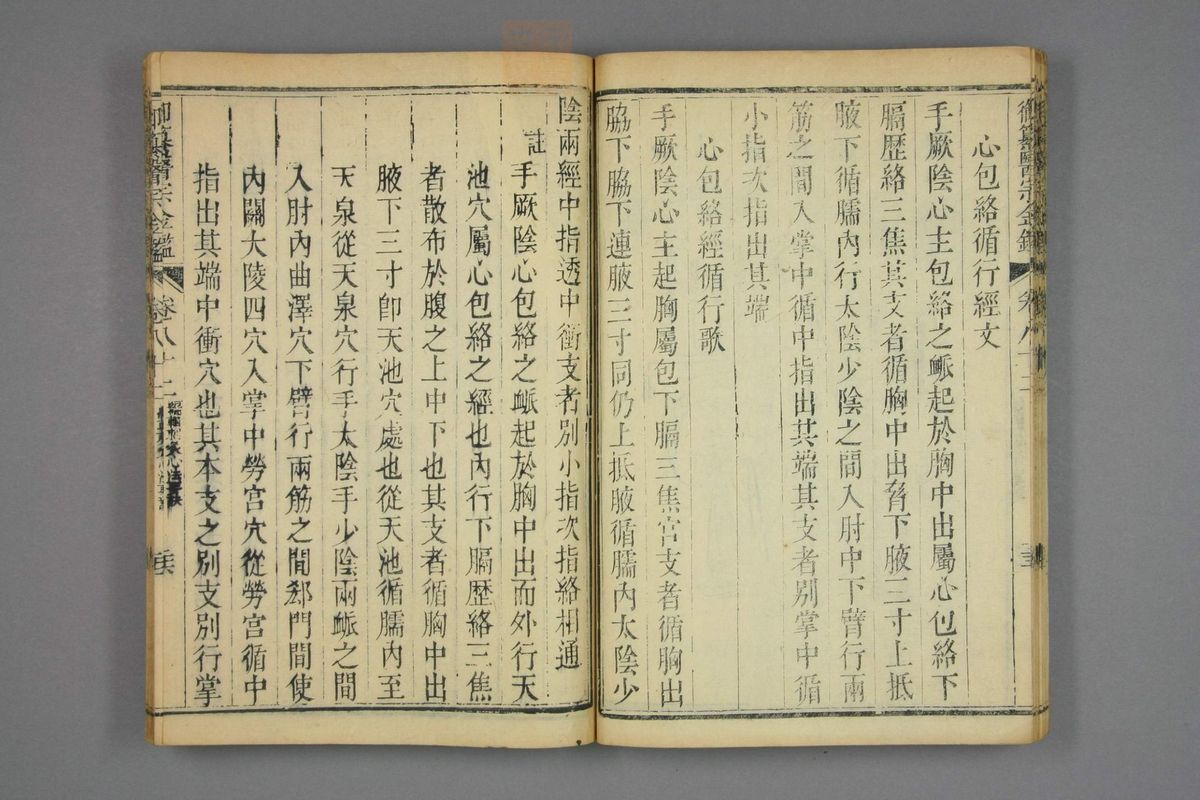 心包絡循行經文
手厥陰心主包絡之衇起於胸中出屬心包絡下
膈歷絡三焦其支者循胸中出脅下腋三寸上抵
腋下循臑內行太陰少陰之間入肘中下臂行兩
筋之間入掌中循中指出其端其支者別掌中循
小指次指出其端
心包絡經循行歌
手厥陰心主起胸屬包下膈三焦宮支者循胸出
脇下脇下連腋三寸同仍上抵腋循臑內太陰少
陰兩經中指透中衝支者別小指次指絡相通
註
手厥陰心包絡之衇起於胸中出而外行天
池穴屬心包絡之經也內行下膈歷絡三焦
者散布於腹之上中下也其支者循胸中出
腋下三寸卽天池穴處也從天池循臑內至
天泉從天泉穴行手太陰手少陰兩衇之間
入肘內曲澤穴下臂行兩筋之間郄門間使
內關大陵四穴入掌中勞宮穴從勞宮循中
指出其端中衝穴也其本支之別支別行掌
御纂醫宗金鑑 卷八十二